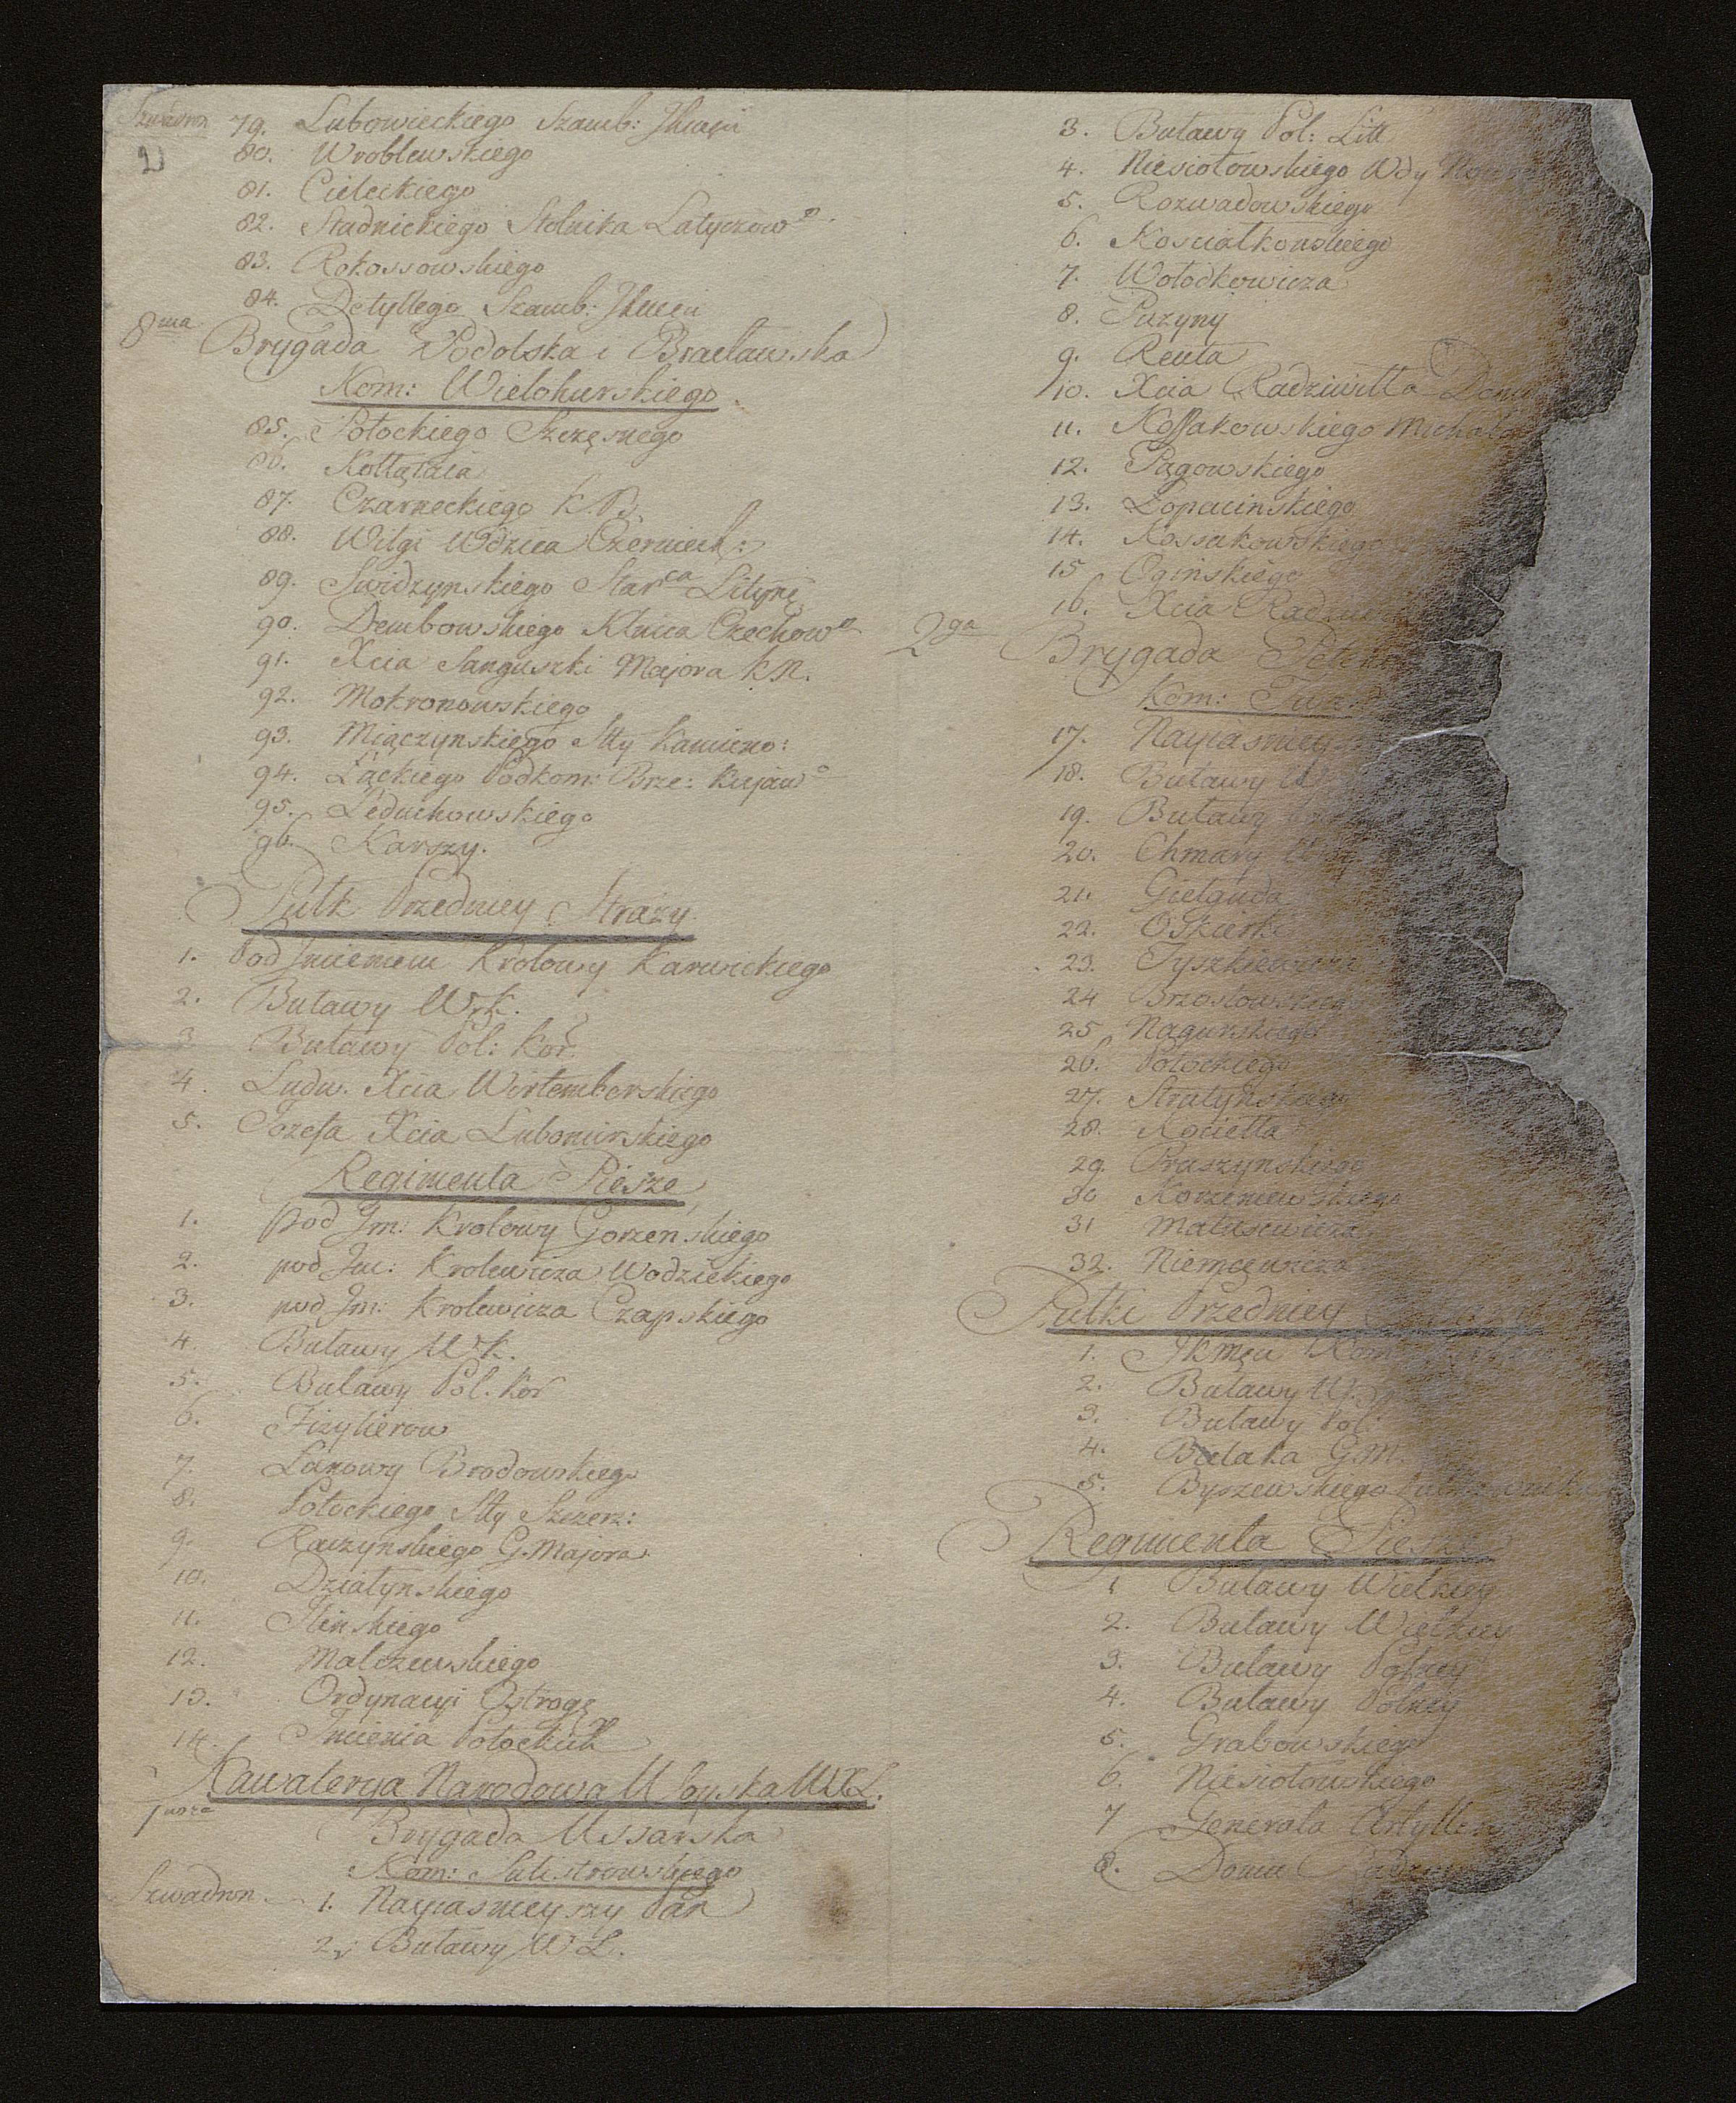 Szwadron 79. Lubowieckiego Szamb: JKmci
80. Wroblewskiego
81. Cieleckiego
82. Stadnickiego Stolnika Latyczowº
83. Rokossowskiego
84. Detyllego Szamb: JKmci
8ma Brygada Podolska i Bracławska
Kom: Wielohurskiego
85. Potockiego Szczęsnego
86. Kołłątaia
87. Czarneckiego K.B.
88. Wilgi Wdzica Czerniech:
89. Swidzynskiego Starca Lityne
90. Dembowskiego Kłnica Czechowº
91. Xcia Sanguszki Majora k N.
92. Mokronowskiego
93. Miączynskiego Stty Kamieno:
94. Łąckiego Podkom: Brze: Kujawº
95. Leduchowskiego
96. Karszy.
Pulk Przedniey Strazy
1. Pod Jmieniem Krolowy Karwickiego
2. Buławy W. K.
3. Buławy Pol: Kor.
4. Ludw. Xcia Wirtemberskiego
5. Jozefa Xcia Lubomirskiego
Regimenta Piesze
1. pod Jm: Krolowy Gorzenskiego
2. pod Jm: Krolewicza Wodzickiego
3. pod Jm: Krolewicza Czapskiego
4. Buławy W. K.
5. Buławy Pol. Kor
6. Fizylierow
7. Łanowy Brodowskiego
8. Potockiego Stty Szczerz:
9. Raczynskiego G. Majora
10. Działynskiego
11. Ilinskiego
12. Malczewskiego
13. Ordynacyi Ostrogę
14. Jmienia Potockich
Kawalerya Narodowa Woyska W.X.L.
1wsza Brygada Ussarska
Kom: Sulistrowskiego
Szwadron. 1. Nayiasnieyszy Pan
2. Buławy W L.
3. Buławy Pol: Litt
4. Niesiołowskiego Wdy
5. Rozwadowskiego
6. Kosciałkowskiego
7. Wołodkowicza
8. Puzyny
9. Reuta
10. Xcia Radziwiłła Domu
11. Kossakowskiego Michała
12. Pągowskiego
13. Łopacinskiego
14. Kossakowskiego
15 Oginskiego
16. Xcia
2ga Brygada
Kom:
17. Nayiasniey
18. Buławy W
19. Buławy
20. Chmary
21. Giełguda
22. Oskierki
23. Tyszkiewicza
24 Brzostowskiego
25 Nagurskiego
26. Potockiego
27. Strutynskiego
28. Kociełła
29. Pruszynskiego
30 Korzeniewskiego
31 Matusewicza
32. Niemcewicza
Pulki Przedniey
1. JKmci Kom
2. Buławy W.
3. Buławy Pol:
4. Bielaka G.M.
5. Byszewskiego Pułkownika
Regimenta Piesze
1 Buławy Wielkiey
2. Buławy Wielkiey
3. Buławy Polney
4. Buławy Polney
5. Grabowskiego
6. Niesiołowskiego
7 Generała Artyller
8. Domu